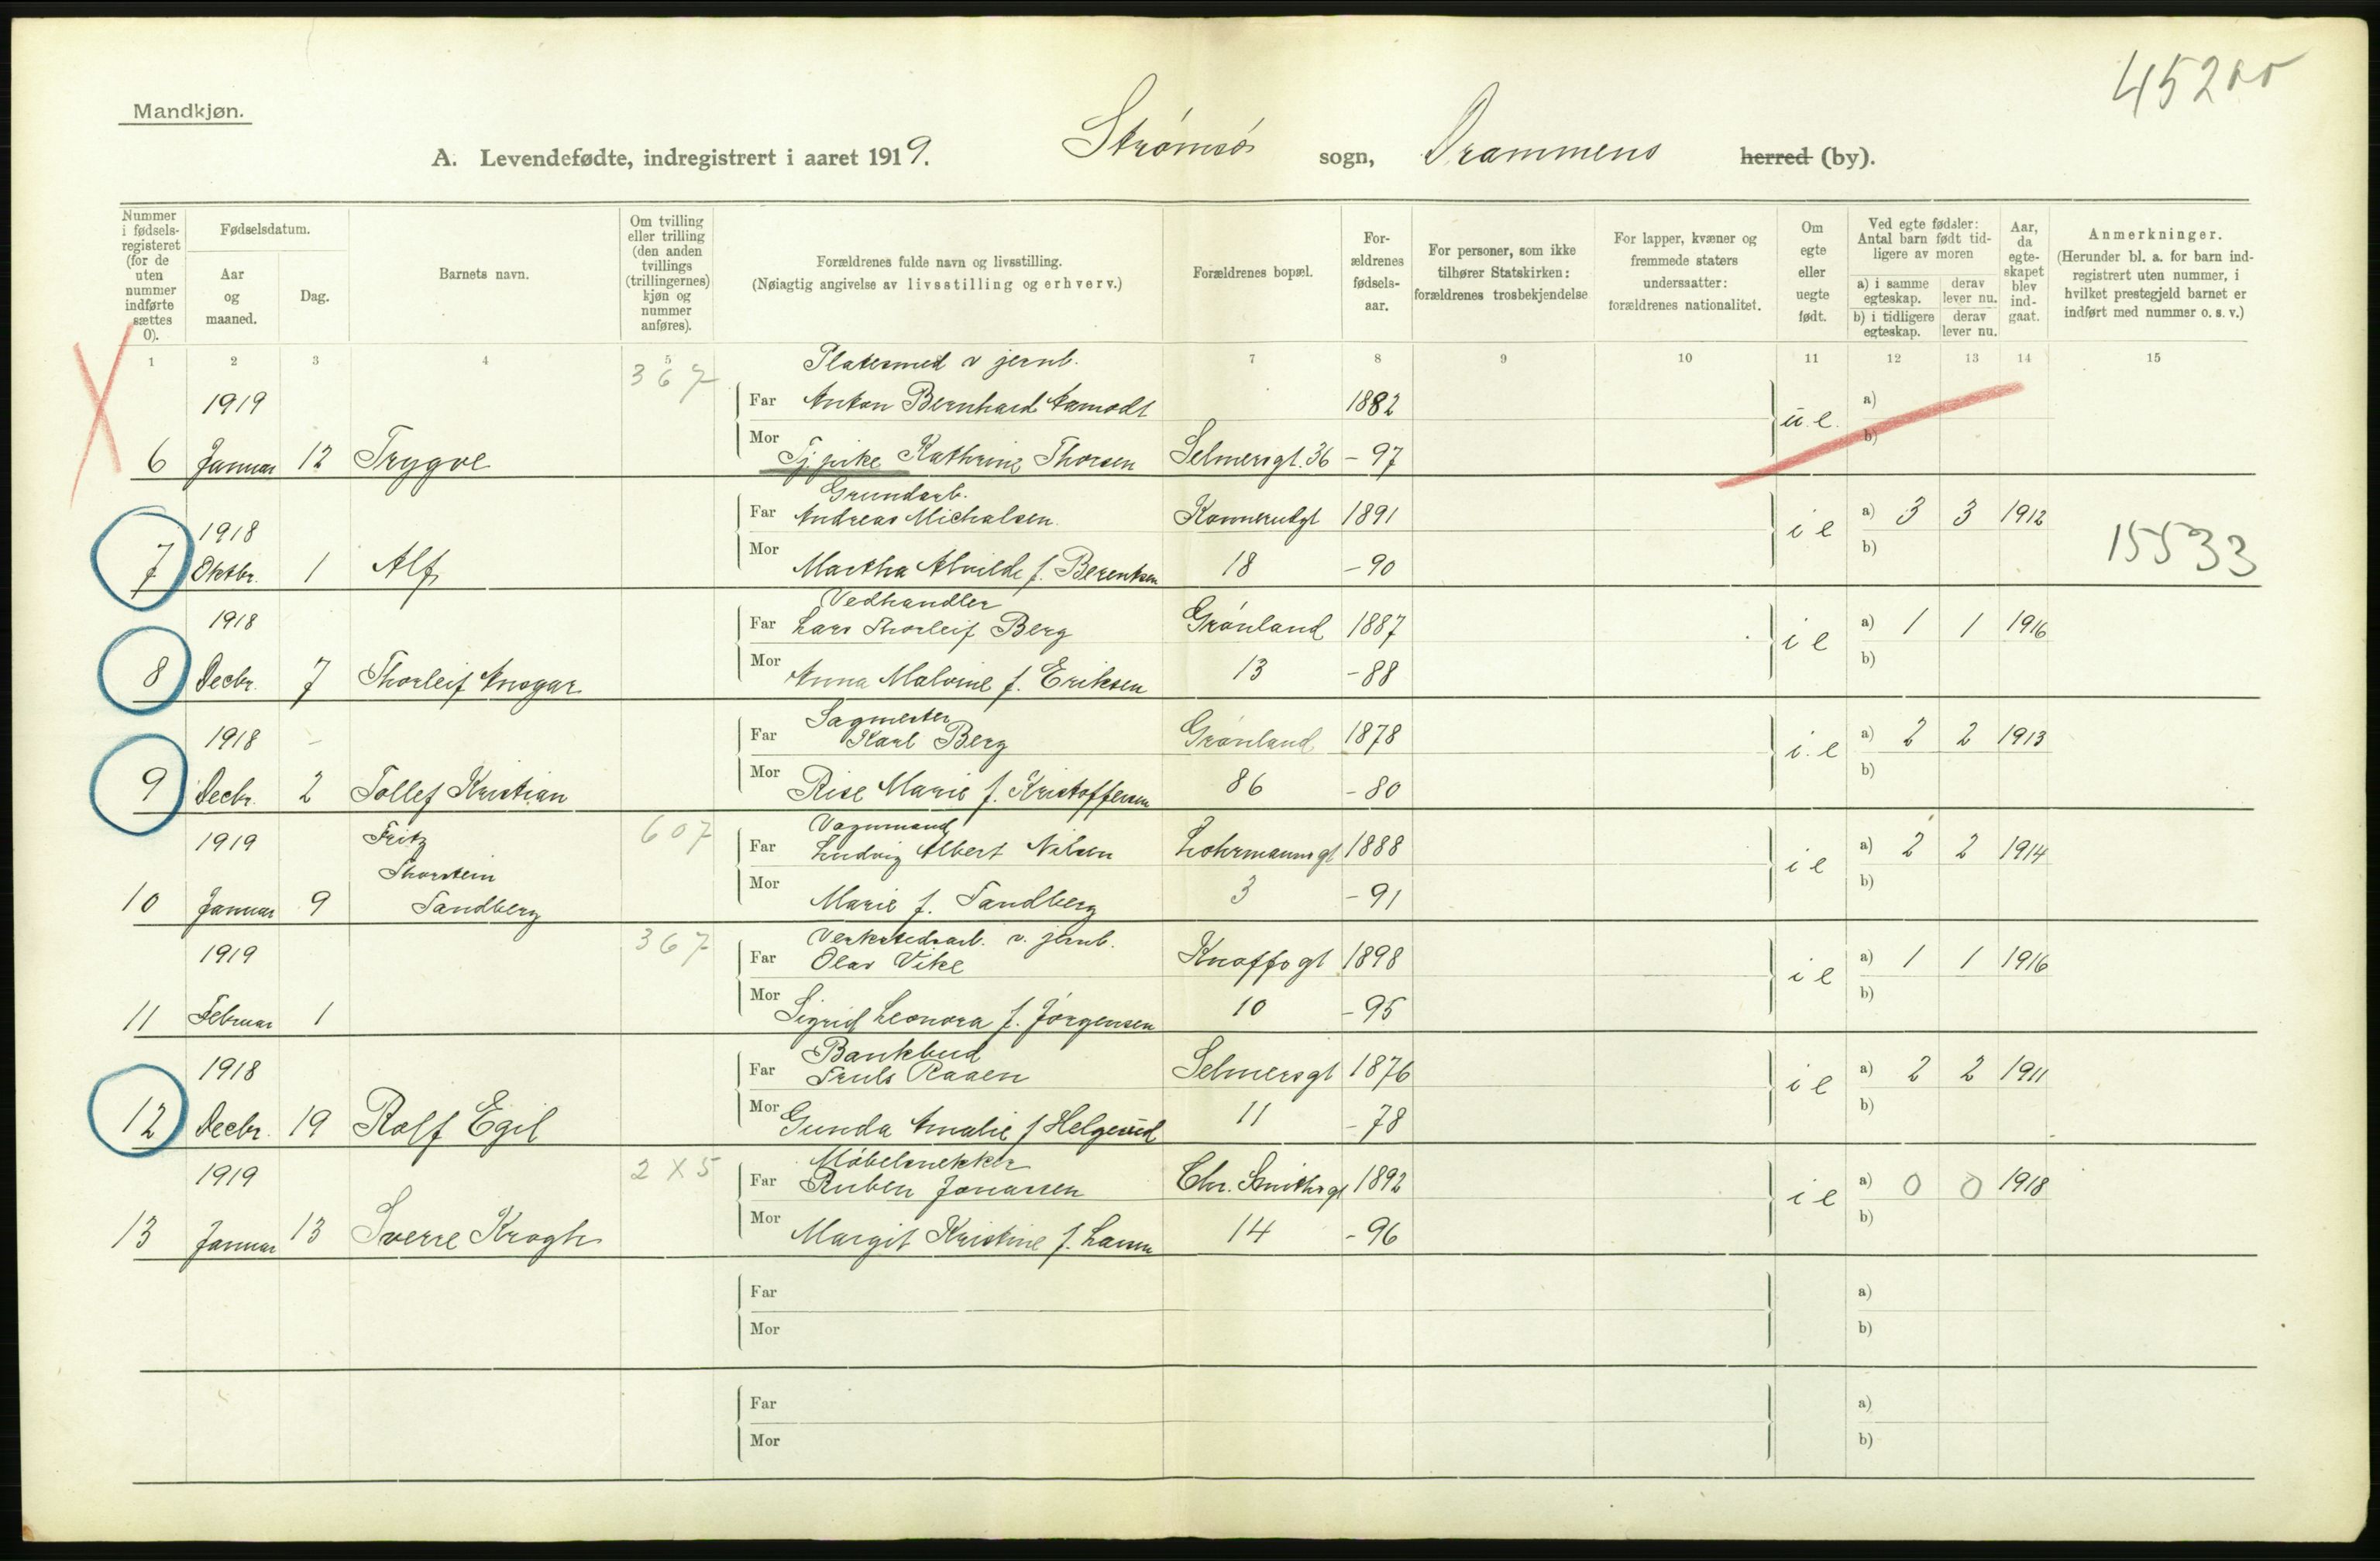 45200
Mandkjøn.
A. Levendefødte, indregistrert i aaret 1919. Strømsø sogn, Drammens herred (by).
Nummer i fødsels-registeret (for de uten nummer indførte sættes 0).
Fødselsdatum.
Aar og maaned.
Dag.
Barnets navn.
Om tvilling eller trilling (den anden tvillings (trillingernes) kjøn og nummer anføres).
Forældrenes fulde navn og livsstilling.
(Nøiagtig angivelse av livsstilling og erhverv.)
Forældrenes bopæl.
For-ældrenes fødsels-aar.
For personer, som ikke tilhører Statskirken: forældrenes trosbekjendelse
For lapper, kvæner og fremmede staters undersaatter: forældrenes nationalitet.
Om egte eller uegte født.
Ved egte fødsler: Antal barn født tid-ligere av moren
a) i samme egteskap. derav lever nu.
b) i tidligere egteskap. derav lever nu.
Aar, da egte-skapet blev ind-gaat.
Anmerkninger.
(Herunder bl. a. for barn ind-registrert uten nummer, i hvilket prestegjeld barnet er indført med nummer o. s. v.)
1 2 3 4 5 7 8 9 10 11 12 13 14 15
367 Platesmed v jernb.
1919 Far Anton Bernhard Aamodt 1882 u.e. a)
6 Januar 12 Trygve Mor Tj.pike Kathrine Thorsen Selmersgt. 36 - 97 b)
Grundarb.
1918 Far Andreas Michalsen Konnerudgt 1891 i e a) 3 3 1912
7 Oktbr. 1 Alf Mor Martha Alvilde f. Berentsen 18 - 90 b) 15533
Vedhandler
1918 Far Lars Thorleif Berg Grønland 1887 i e a) 1 1 1916
8 Decbr. 7 Thorleif Ansgar Mor Anna Malvine f. Eriksen 13 - 88 b)
Sagmester
1918 Far Karl Berg Grønland 1878 i. e a) 2 2 1913
9 Decbr. 2 Tollef Kristian Mor Rise Marie f. Kristoffersen 86 - 80 b)
Fritz 607 Vognmand
1919 Thorstein Far Ludvig Albert Nilsen Lohrmannsgt 1888 i e a) 2 2 1914
10 Januar 9 Sandberg Mor Marie f. Sandberg 3 - 91 b)
367 Verkstedsarb. v. jernb.
1919 Far Olav Vike Knoffsgt 1898 i e a) 1 1 1916
11 Februar 1 Mor Sigrid Leonora f. Jørgensen 10 - 95 b)
Bankbud
1918 Far Truls Raaen Selmersgt 1876 i e a) 2 2 1911
12 Decbr. 19 Rolf Egil Mor Gunda Amalie f Helgerud 11 - 78 b)
2 X 5 Møbelsnekker
1919 Far Ruben Jonassen Chr. Smithsgt 1892 i e a) 0 0 1918
13 Januar 13 Sverre Krogh Mor Margit Kristine f. Larsen 14 - 96 b)
Far a)
Mor b)
Far a)
Mor b)